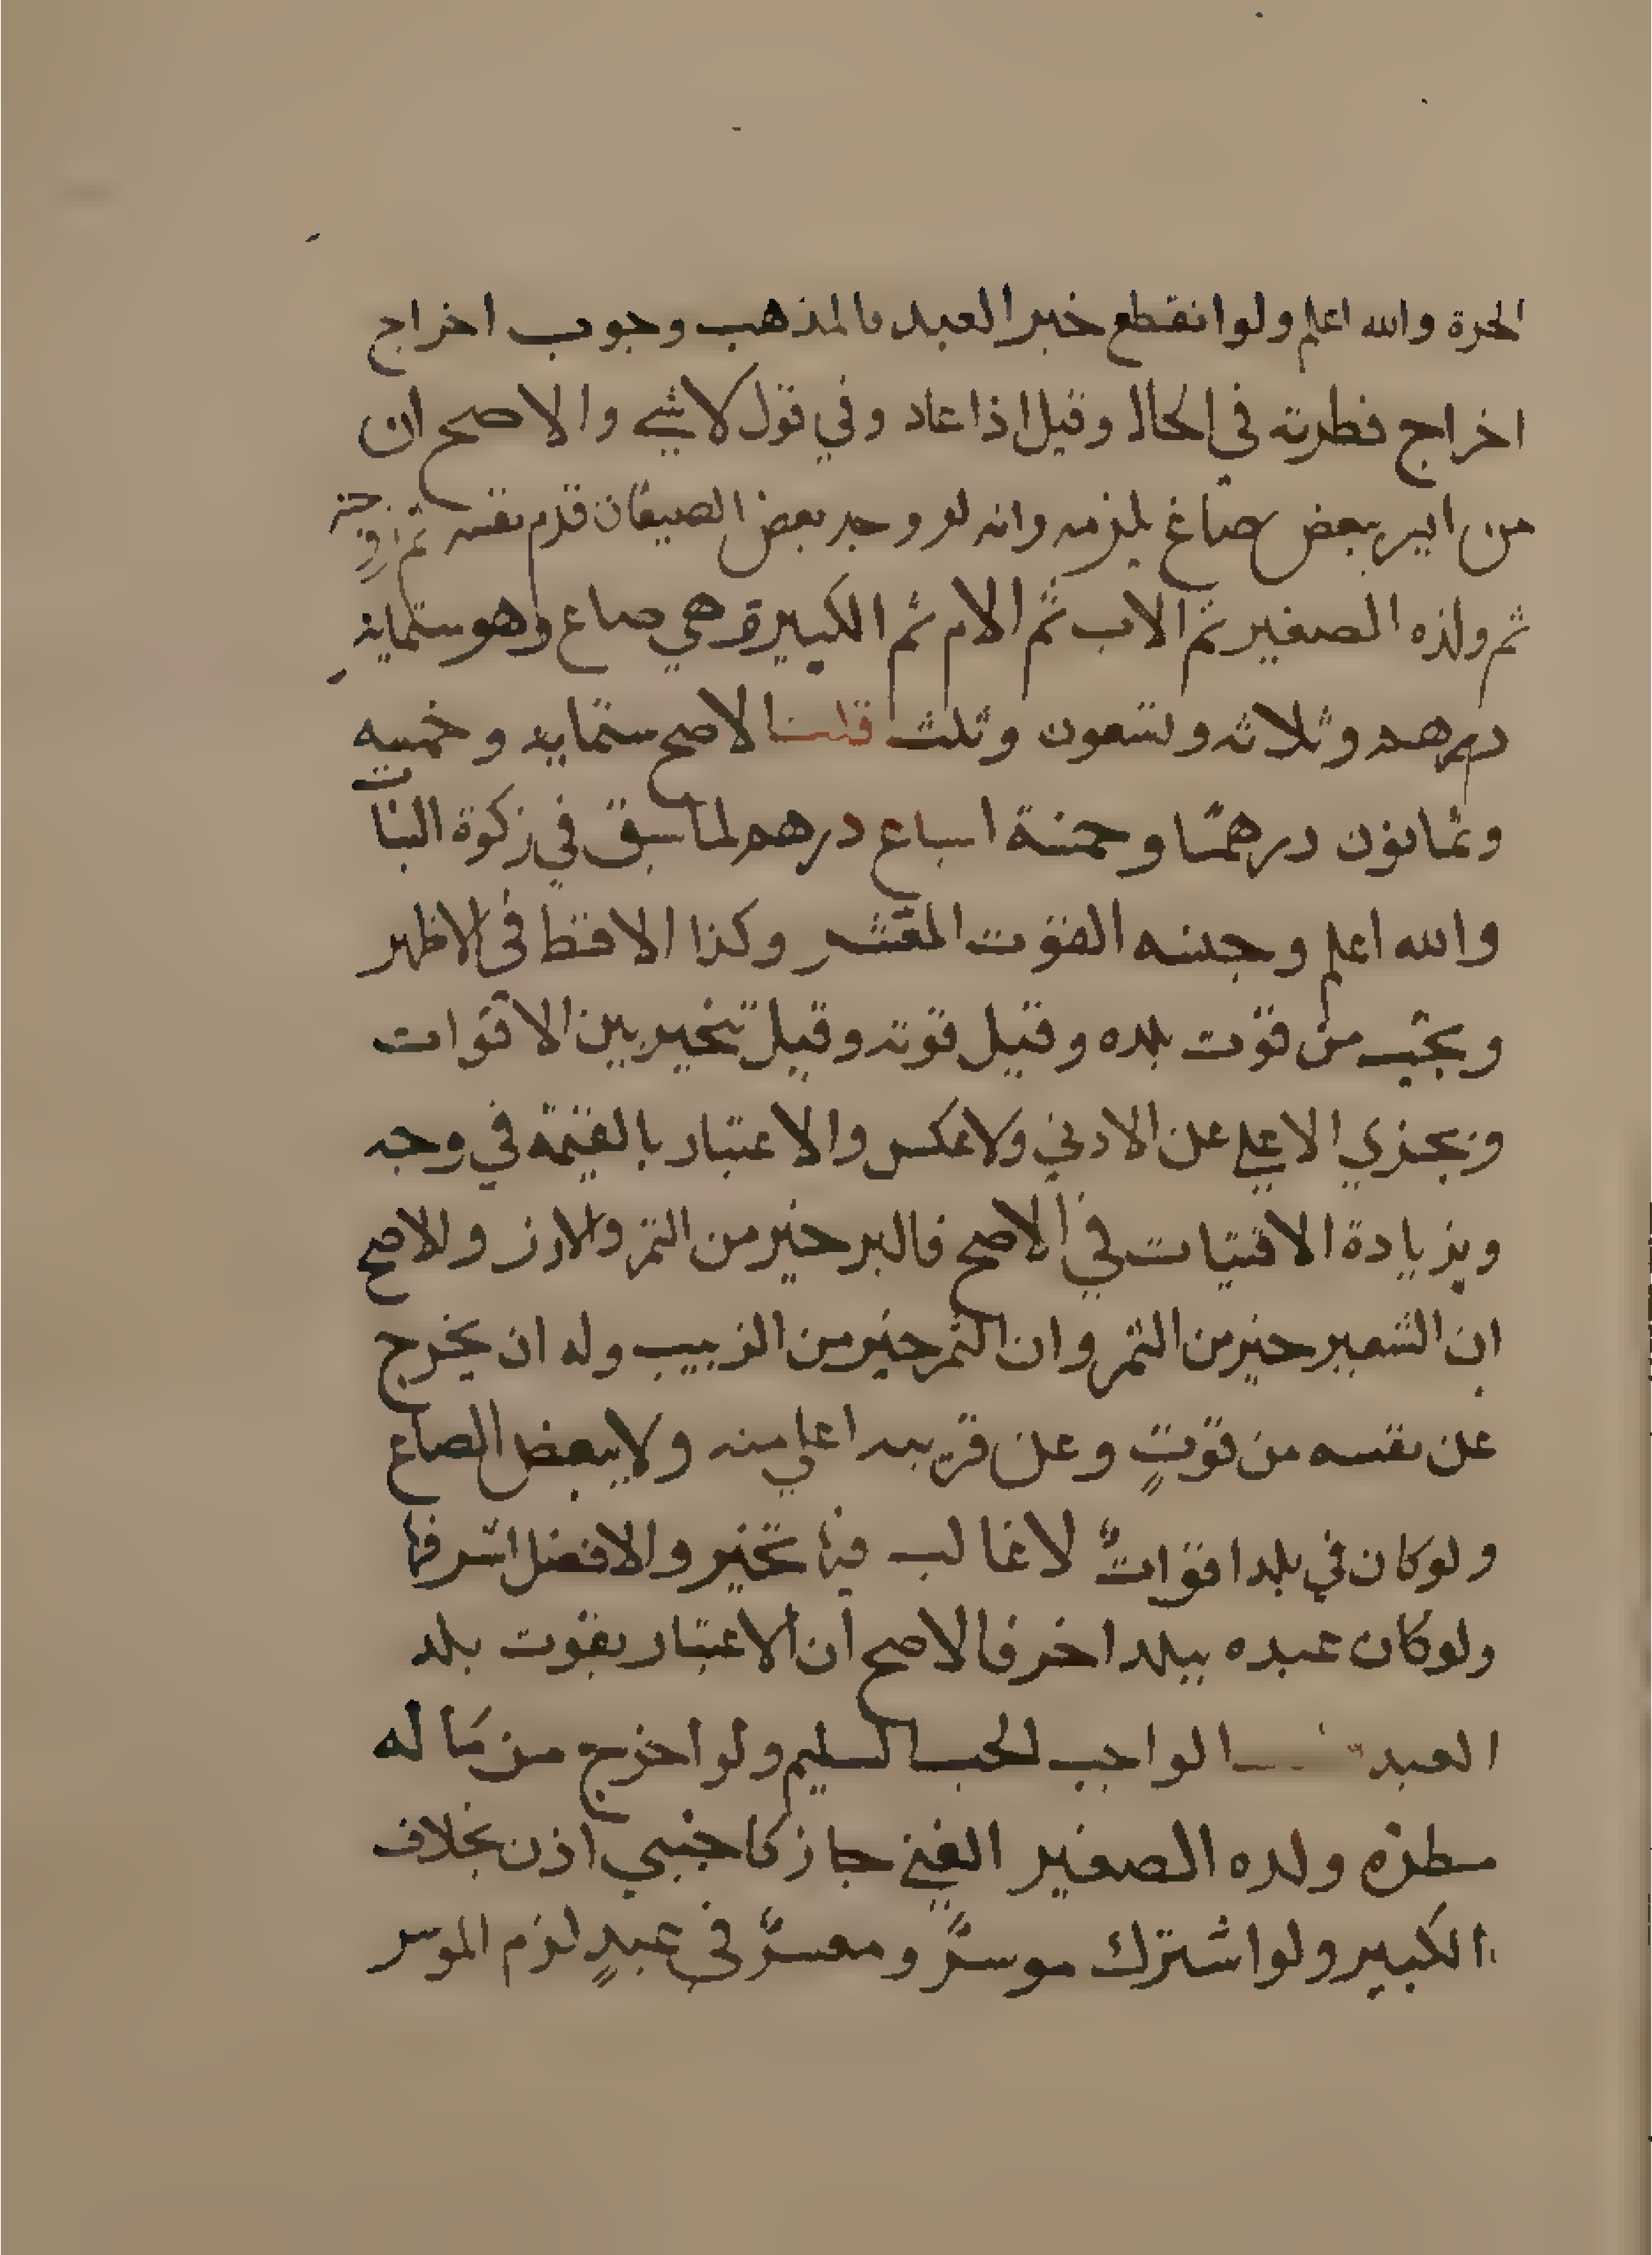 الحرة والله اعلم ولو انقطع خبر العبد فالمذهب وجوب اخراج
اخراج فطرته في الحال وقيل اذا عاد وفي قول لا شيء والاصح ان
من ايسر ببعض صاع يلزمه وانه لو وجد بعض الصيعان قدم نفسه ثم زوجته
ثم ولده الصغير ثم الاب ثم الام ثم الكبير وهي صاع وهو ستماية
درهم وثلاثه وتسعون وثلث قلت الاصح ستماية وخمسه
وثمانون درهمًا وخمسة اسباع درهم لما سبق في زكوة النبات
والله اعلم وجنسه القوت المعشر وكذا الاقط في الاظهر
ويجب من قوت بلده وقيل قوته وقيل تخير بين الاقوات
ويجزي الاعلي عن الادني ولا عكس والاعتبار بالقيمة في وجه
وبزيادة الاقتيات في الاصح فالبر خير من التمر والارز والاصح
ان الشعير خير من التمر وان التمر خير من الزبيب وله ان يخرج
عن نفسه من قوتٍ وعن قريبه اعلي منه ولا يبعض الصاع
ولو كان في بلد اقواتٌ لا غالب فيها تخير والافضل اشرفها
ولو كان عبده ببلد اخر فالاصح ان الاعتبار بقوت بلد
العبد الواجب الحب السليم ولو اخرج من مَاله
فطرة ولده الصغير الغني جاز كاجنبي اذن بخلاف
الكبير ولو اشترك موسرٌ ومعسرٌ في عبدٍ لزم الموسر